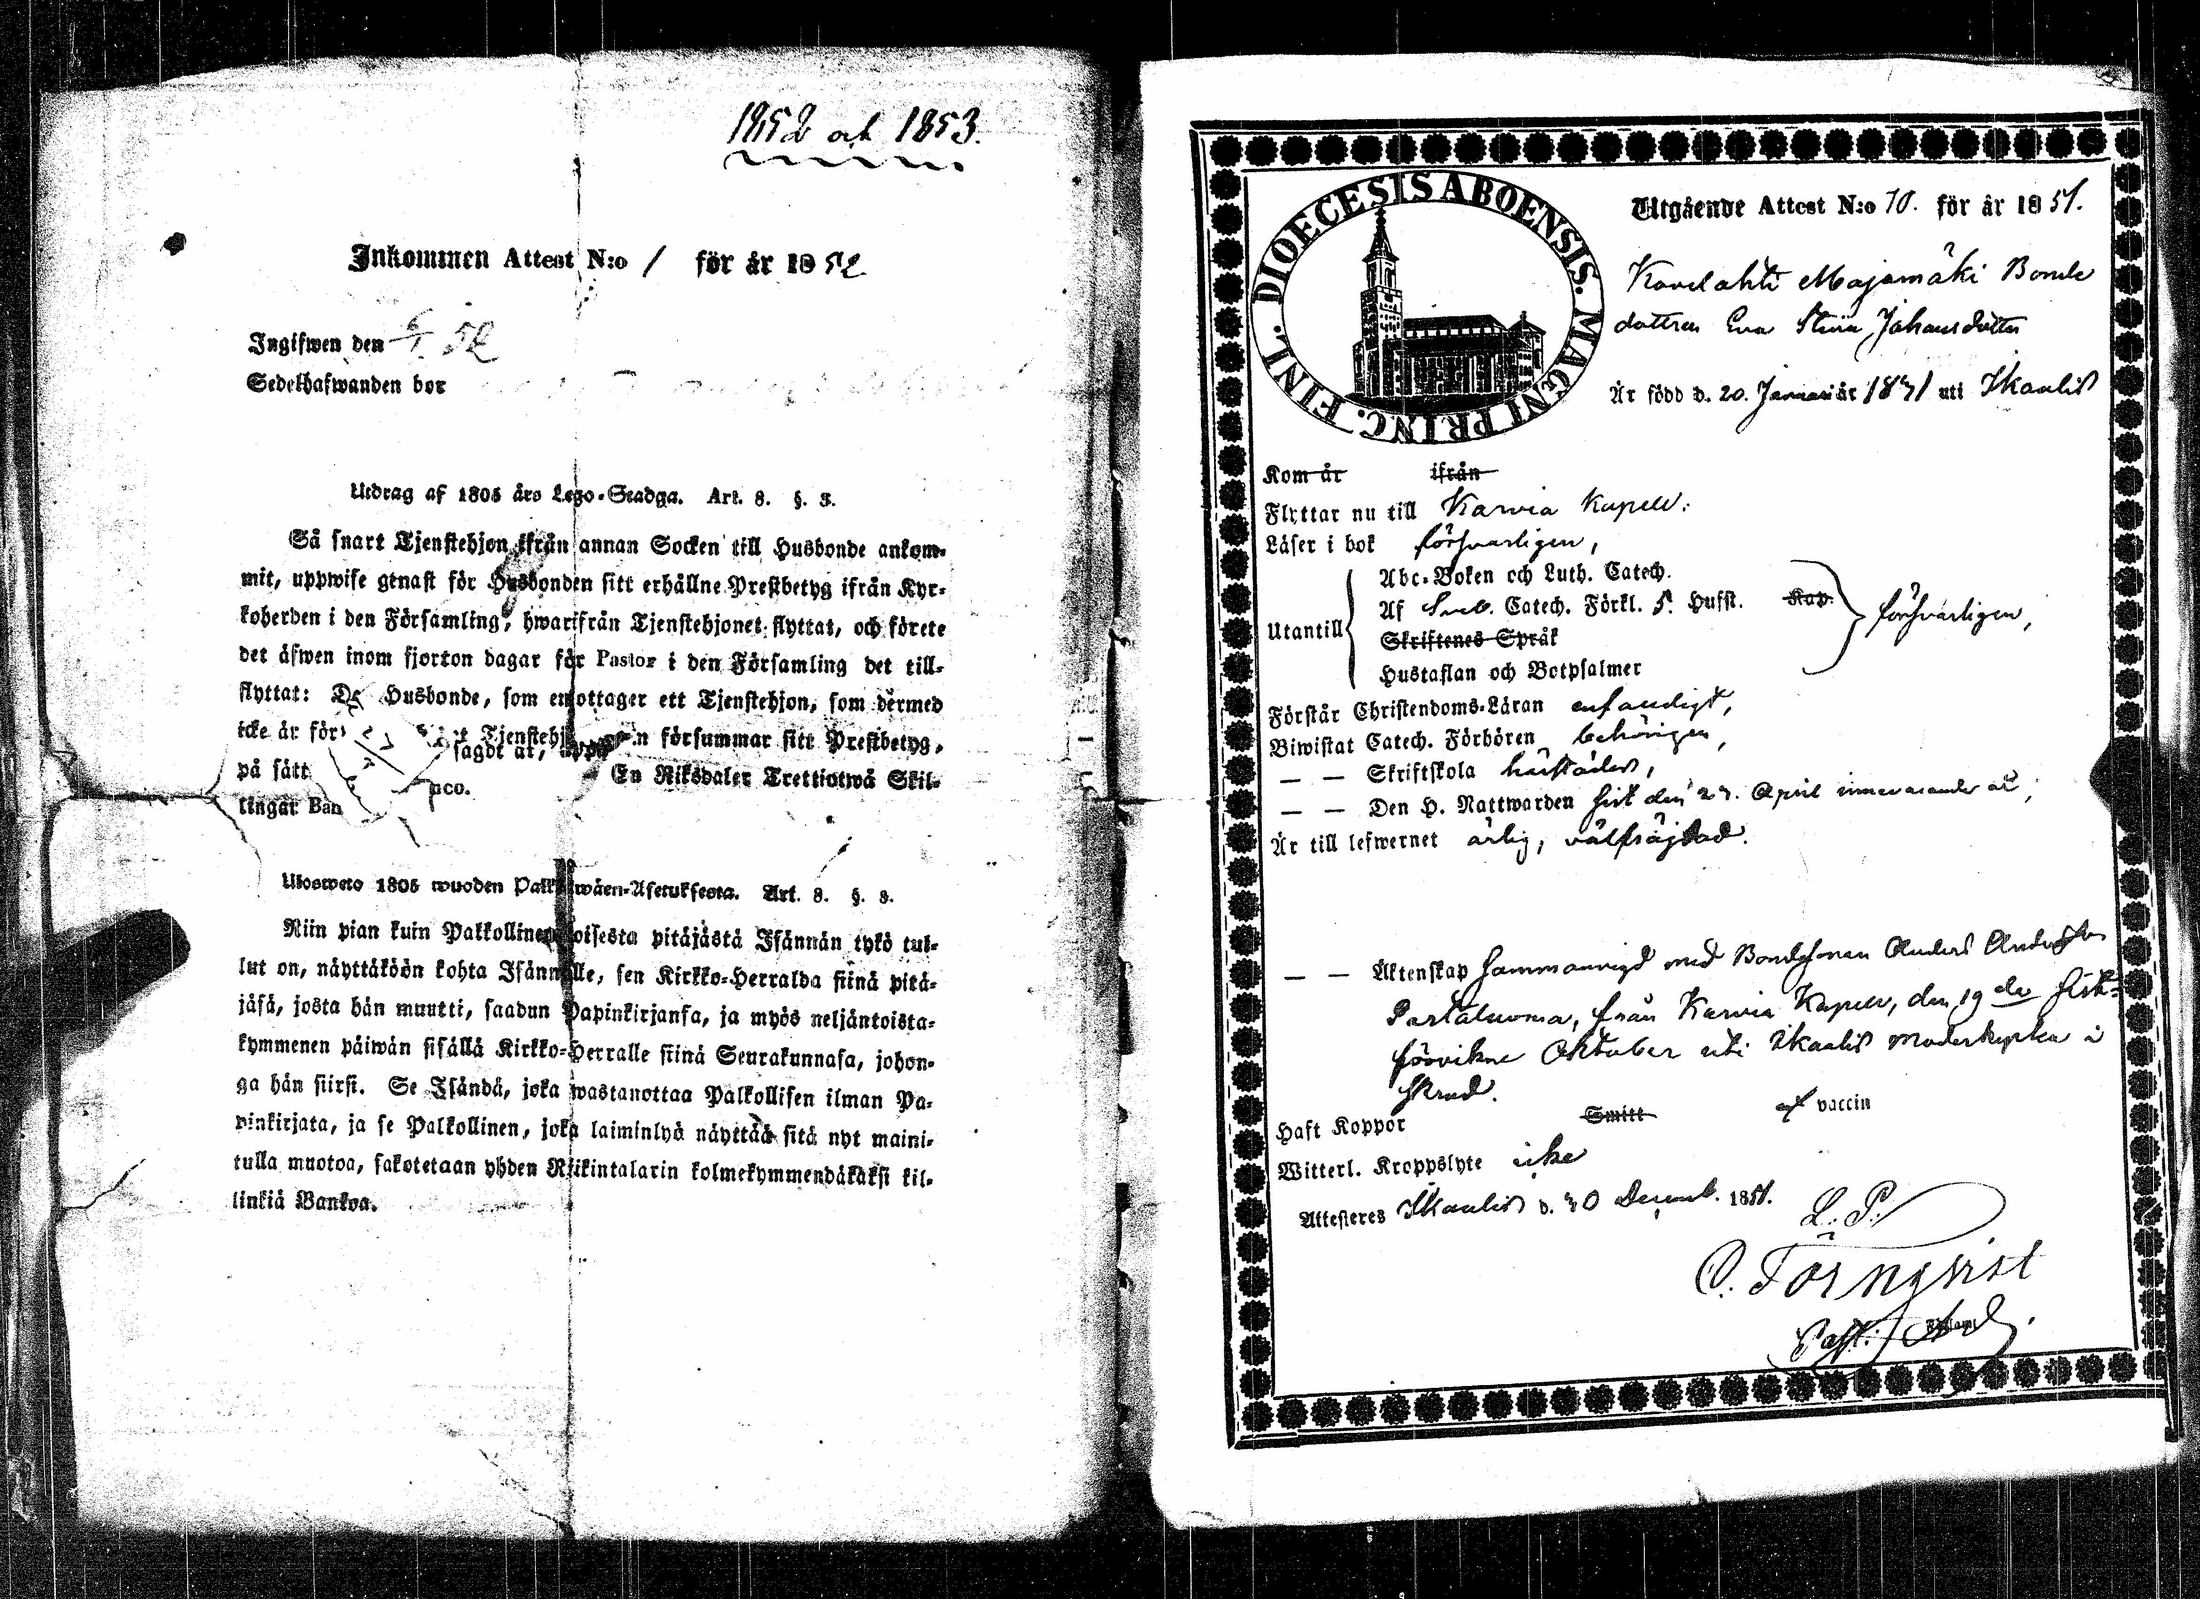 1852 och 1853.
Inkommen Attest N:o 1 för år 1852
Ingifwen den 6/1 52
Sedelhafwanden bor
Utdrag af 1805 års Lego-Stadga. Art. 8. §. 3.
Så snart Tjenstehjon ifrån annan Socken till Husbonde ankom-
mit, uppwise genast för Husbonden sitt erhållne Prestbetyg ifrån Kyr-
koherden i den Församling, hwarifrån Tjenstehjonet flyttat, och förete
det äfwen inom fjorton dagar för Pastor i den Församling det till-
flyttat: Husbonde, som emottager ett Tjenstehjon, som dermed
icke är för Tjenstehj försummar sitt Prestbetyg,
på sätt sagdt är, En Riksdaler Trettiotwå Skil-
lingar Ban nco.
Ulosweto 1805 wuoden Palkkawäen-Asetuksesta. Art. 8. §. 3.
Niin pian kuin Palkollinen toisesta pitäjästä Isännän tykö tul-
lut on, näyttäköön kohta Isännälle, sen Kirkko-Herralda siinä pitä-
jäsä, josta hän muutti, saadun Papinkirjansa, ja myös neljäntoista-
kymmenen päiwän sisällä Kirkko-Herralle siinä Seurakunnasa, johon-
ga hän siirsi. Se Isändä, joka wastanottaa Palkollisen ilman Pa-
pinkirjata, ja se Palkollinen, joka laiminlyö näyttää sitä nyt maini-
tulla muotoa, sakotetaan yhden Riikintalarin kolmekymmendäkaksi kil-
linkiä Bankoa.
DIOECESIS ABOENSIS. MAGNI PRINC. FINL.
Utgående Attest N:o 70. för år 1851.
Kovelahti Majamäki Bonde
dottren Eva Stina Johansdotter
Är född d. 20. Januari år 1831 uti Ikaalis
Kom år ifrån
Flyttar nu till Karvia Kapell.
Läser i bok försvarligen,
Abc-Boken och Luth. Catech.
Af Sveb. Catech. Förkl. 5. Hufst. Kap.
Utantill försvarligen,
Skriftenes Språk
Hustaflan och Botpsalmer
Förstår Christendoms-Läran enfaldigt,
Biwistat Catech. Förhören behörigen,
— — Skriftskola härstädes,
— — Den H. Nattwarden sist den 27. April innevarande år,
Är till lefwernet ärlig, välfräjdad.
— — Äktenskap sammanvigd med Bondesonen Anders Andersson
Partaluoma, från Karvia Kapell, den 19de sist-
förvikne Oktober uti Ikaalis moderkyrka
skrud.
Haft Koppor Smitt af vaccin
Witterl. Kroppslyte icke
Attesteres Ikaalis d. 30 Decemb. 1851.
L. P.
O. Törnqvist